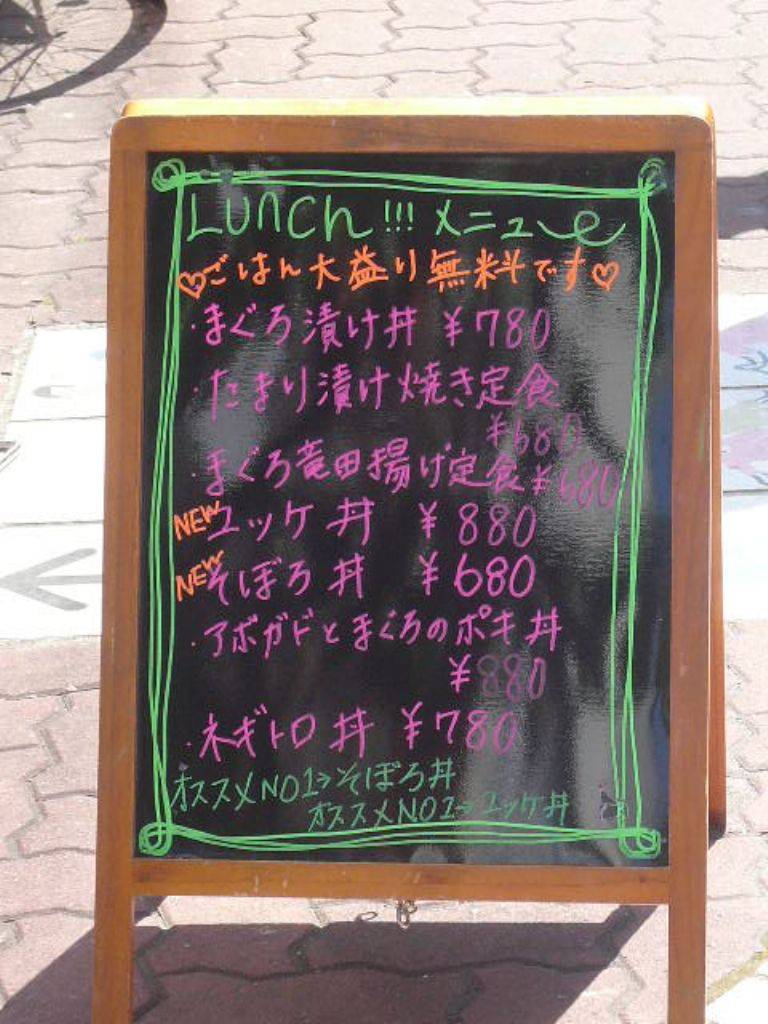 LUNCH!!! メニュー
♡ごはん大盛り無料です♡
・まぐろ漬け丼 ¥780
・たまり漬け焼き定食
¥680
・まぐろ竜田揚げ定食 ¥680
NEW ユッケ丼 ¥880
NEW そぼろ丼 ¥680
・アボガドとまぐろのポキ丼
¥880
・ネギトロ丼 ¥780
オススメNO1⇒そぼろ丼
オススメNO2⇒ユッケ丼